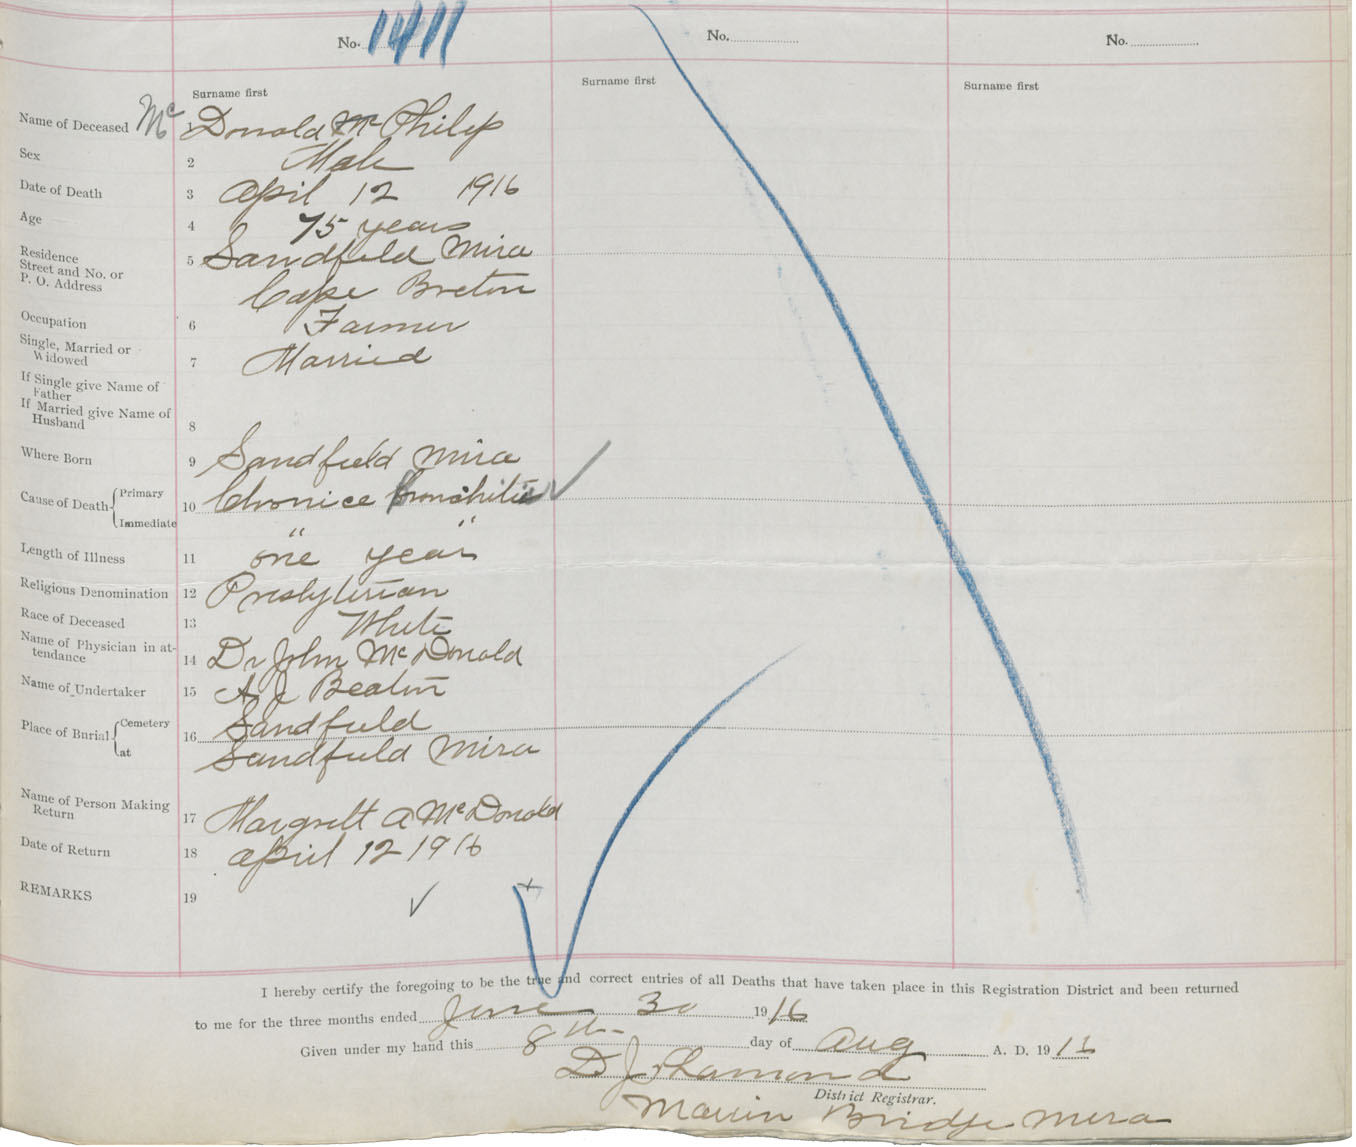 No. 1411
No.
No.
Surname first
Surname first
Surname first
Name of Deceased Mc 1 Donald Mc Philip
Sex 2 Male
Date of Death 3 April 12 1916
Age 4 75 years
Residence
Street and No. or
P. O. Address 5 Sandfield Mira
Cape Breton
Occupation 6 Farmer
Single, Married or
Widowed 7 Married
If Single give Name of
Father
If Married give Name of
Husband 8
Where Born 9 Sandfield Mira
Cause of Death { Primary
Immediate 10 Chronice Bronchitis
" "
Length of Illness 11 one year
Religious Denomination 12 Presbyterian
Race of Deceased 13 White
Name of Physician in at-
tendance 14 Dr John McDonald
Name of Undertaker 15 A J Beaton
Place of Burial { Cemetery
at 16 Sandfield
Sandfield Mira
Name of Person Making
Return 17 Margrett A McDonald
Date of Return 18 April 12 1916
REMARKS 19
I hereby certify the foregoing to be the true and correct entries of all Deaths that have taken place in this Registration District and been returned
to me for the three months ended June 30 1916
Given under my hand this 8th day of Aug A. D. 1916
D J
District Registrar.
Marion Bridge Mira